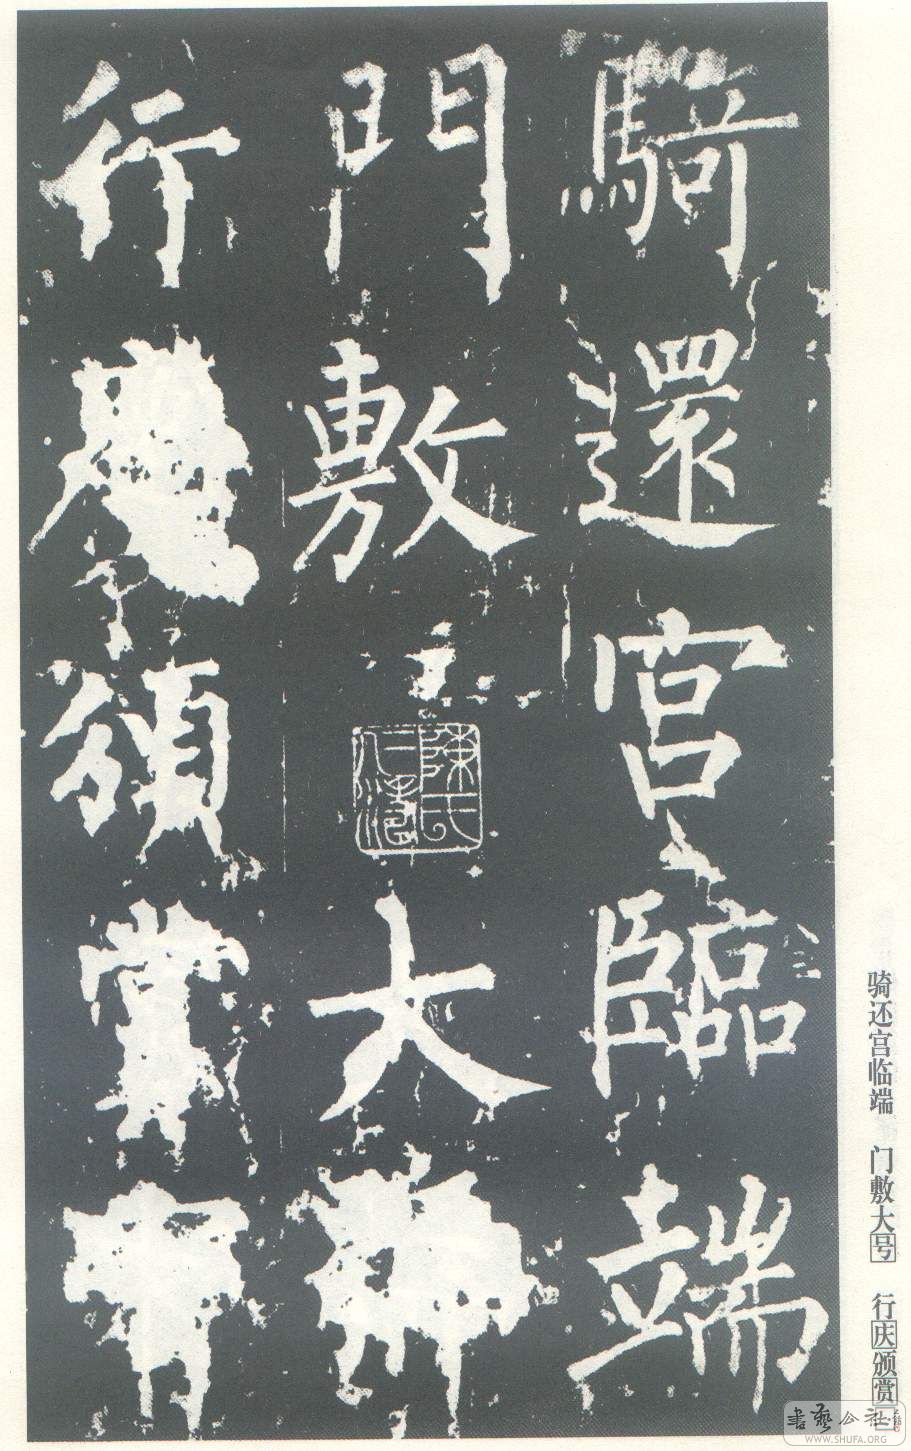 騎還宮臨端
門敷大
行頒賞
陳氏
骑还宫临端 门敷大号 行庆颁赏
書藝公社
WWW.SHUFA.ORG